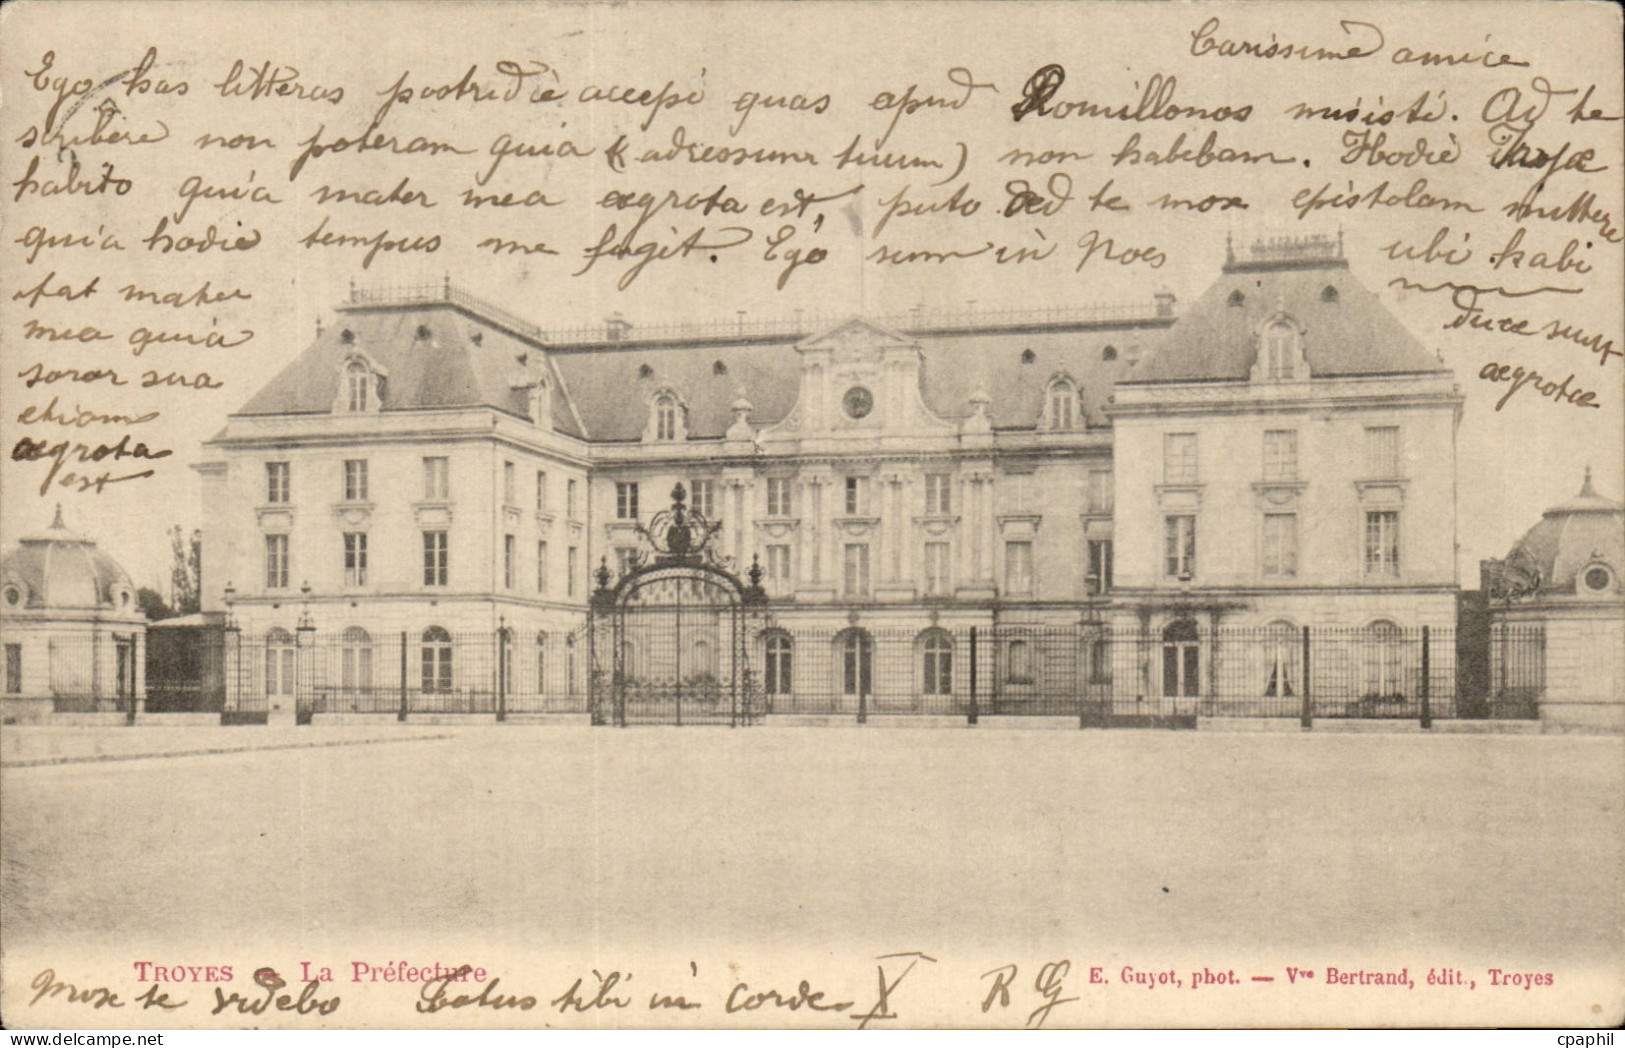 Carissimè amice
Ego has litteras postridiè accepi quas apud Romillonos misisti. Ad te
scribere non poteram quia (adressum tuum) non habebam. Hodiè Trojae
habito quia mater mea aegrota est, puto ad te mox epistolam mittere
quia hodiè tempus me fugit. Ego sum in Noes ubi habi
tat mater
mea quia
soror sua
etiam
aegrota
est
duae sunt
aegrotae
TROYES — La Préfecture
E. Guyot, phot. — Vve Bertrand, édit., Troyes
Mox te videbo Totus tibi in corde X R G
cpaphil